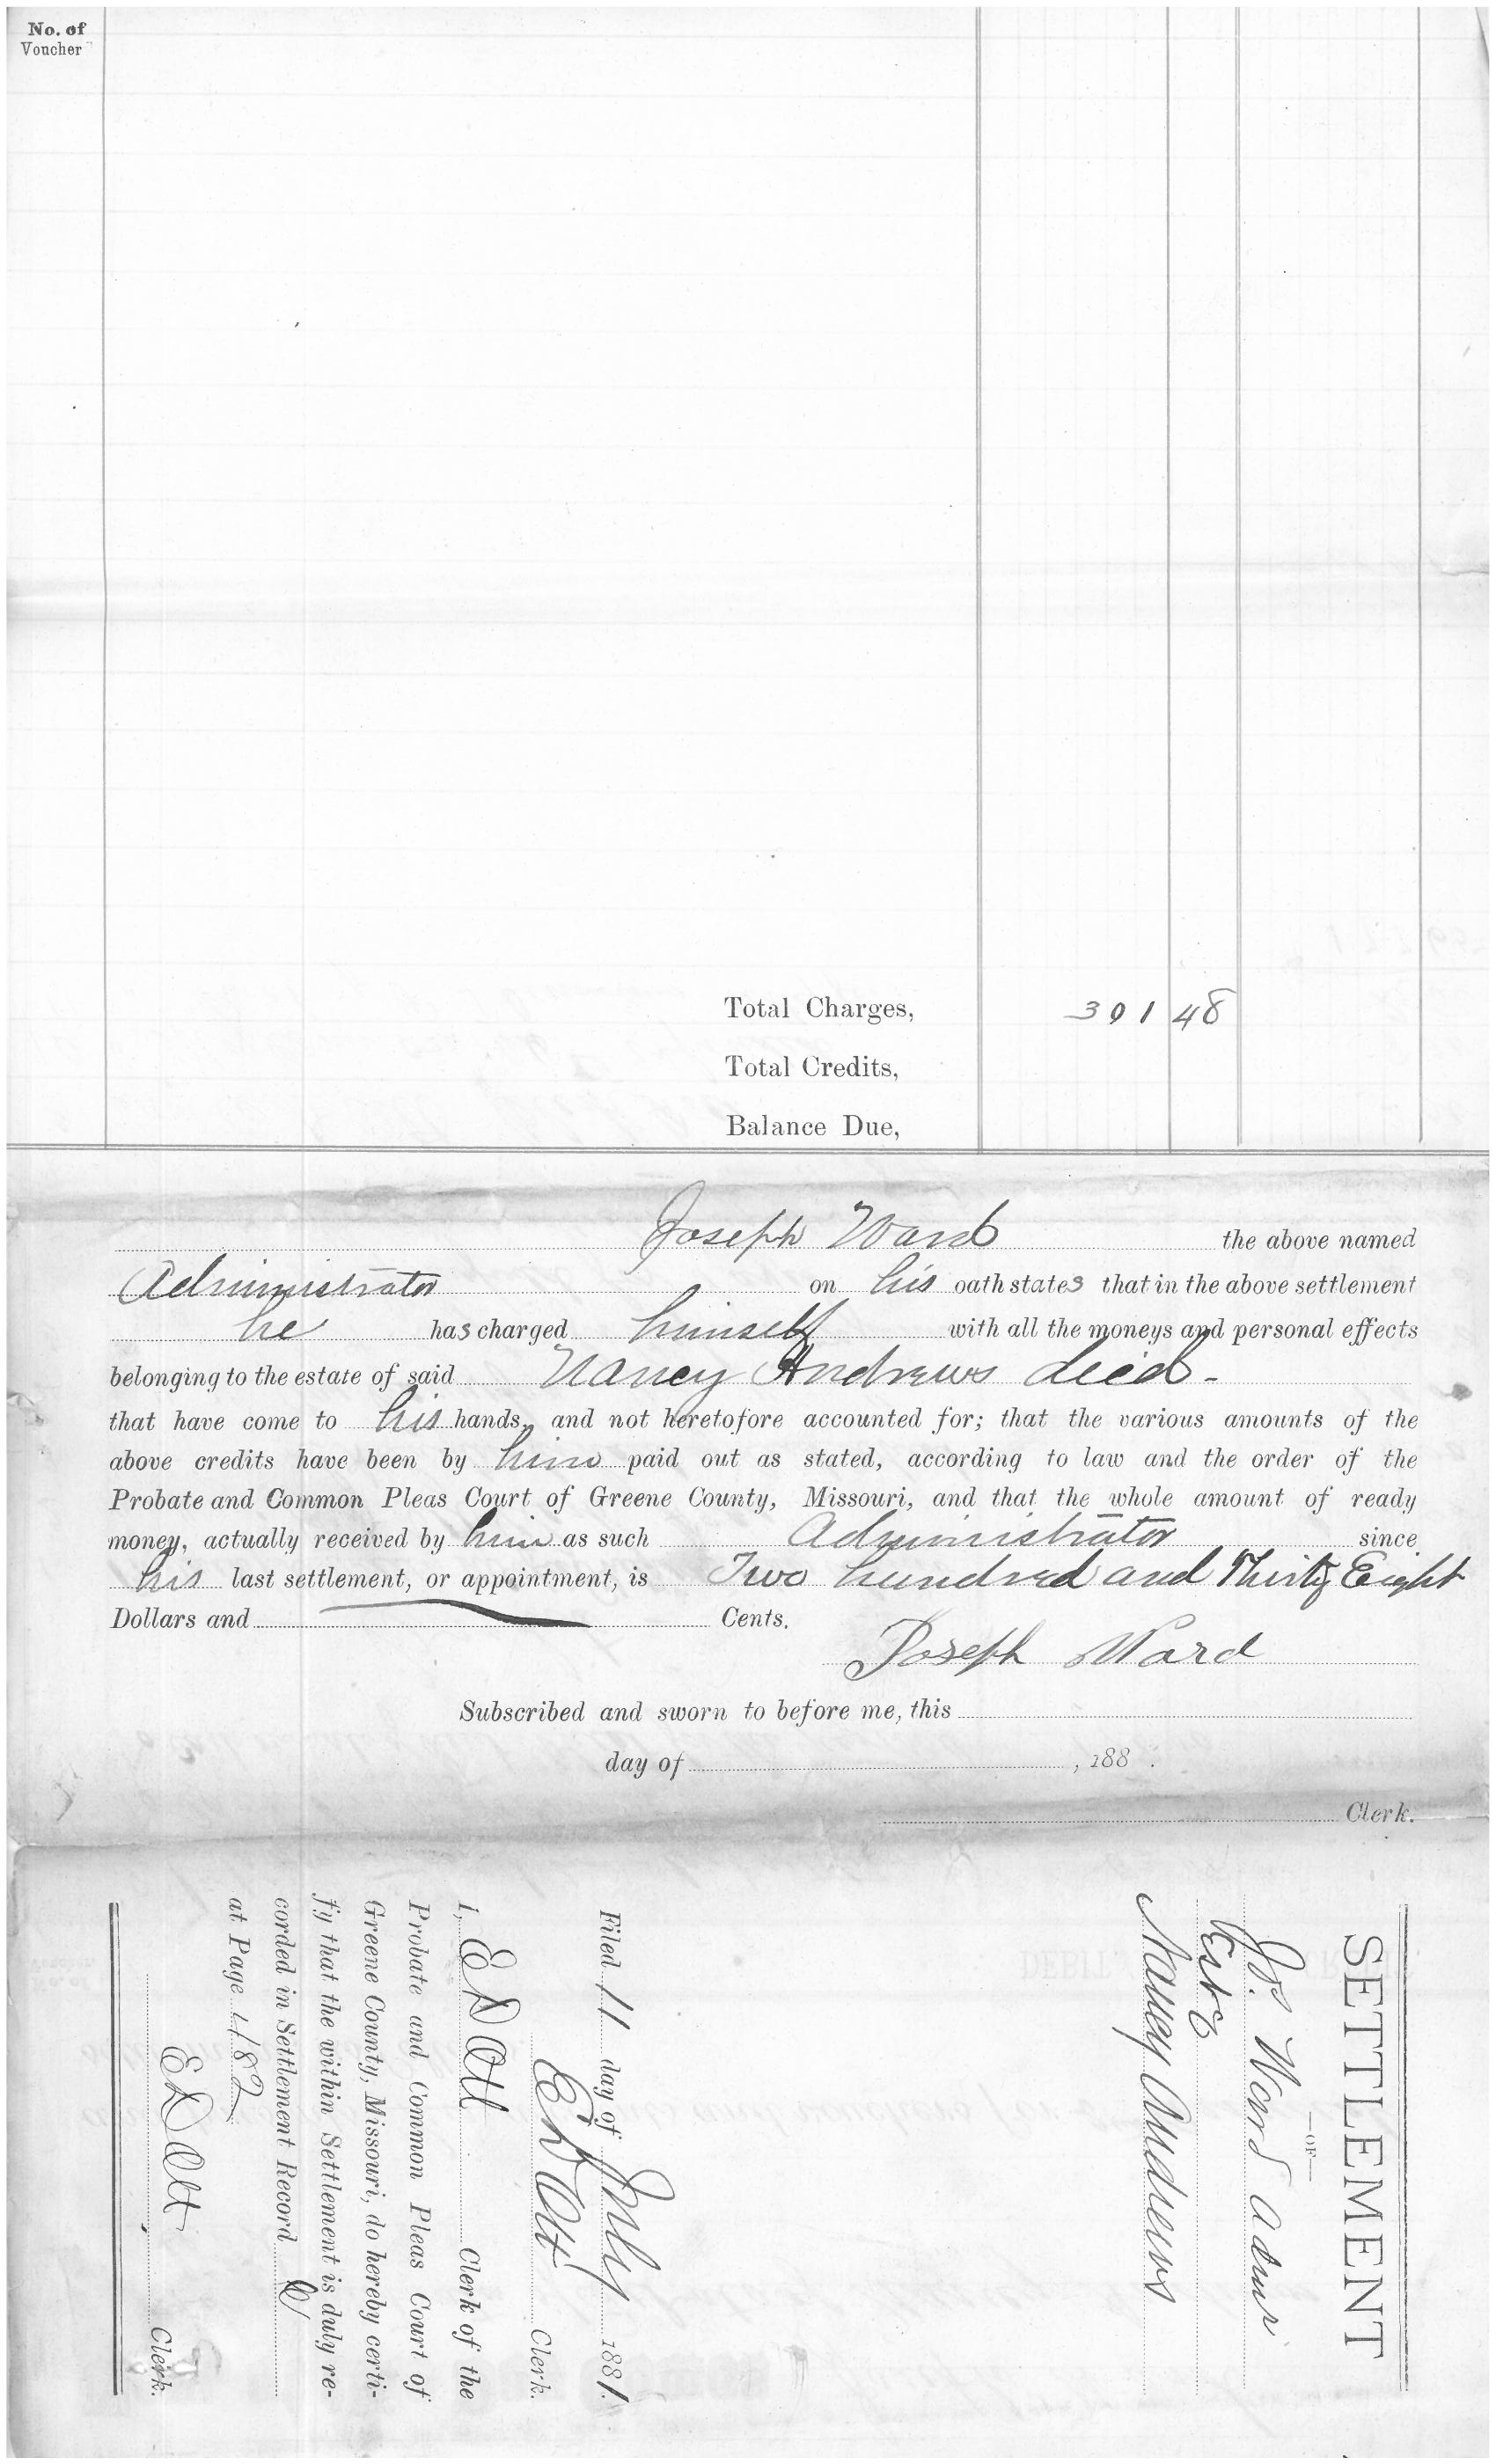 No. of
Voucher
Total Charges, 301 48
Total Credits,
Balance Due,
Joseph Ward the above named
Administrator on his oath states that in the above settlement
he has charged himself with all the moneys and personal effects
belonging to the estate of said Nancy Andrews decd-
that have come to his hands, and not heretofore accounted for; that the various amounts of the
above credits have been by him paid out as stated, according to law and the order of the
Probate and Common Pleas Court of Greene County, Missouri, and that the whole amount of ready
money, actually received by him as such Administrator since
his last settlement, or appointment, is Two hundred and Thirty Eight
Dollars and Cents.
Joseph Ward
Subscribed and sworn to before me, this
day of , 188 .
Clerk.
SETTLEMENT
—OF—
Jos. Ward Admr
Est of
Nancy Andrews
Filed 11 day of July 1881.
E D Ott Clerk.
I, E D Ott Clerk of the
Probate and Common Pleas Court of
Greene County, Missouri, do hereby certi-
fy that the within Settlement is duly re-
corded in Settlement Record
at Page 482
E D Ott Clerk.